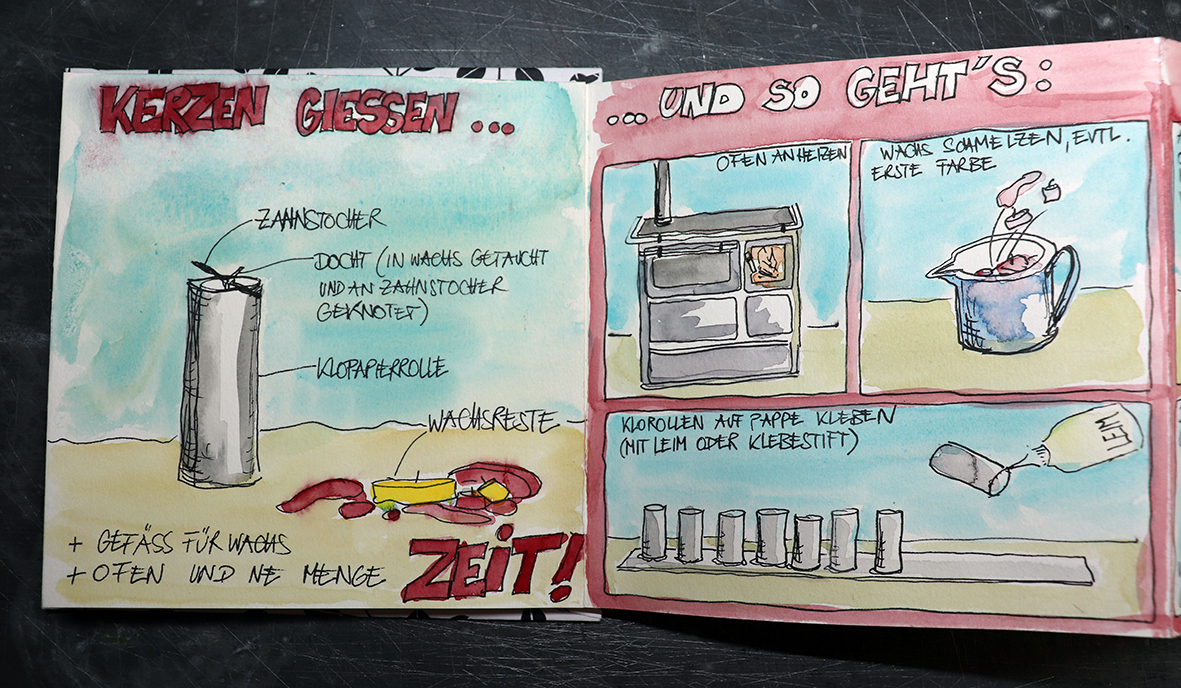 KERZEN GIESSEN ...
ZAHNSTOCHER
DOCHT (IN WACHS GETAUCHT
UND AN ZAHNSTOCHER
GEKNOTET)
KLOPAPIERROLLE
WACHSRESTE
+ GEFÄSS FÜR WACHS
+ OFEN UND NE MENGE
ZEIT!
... UND SO GEHT'S:
OFEN ANHEIZEN
WACHS SCHMELZEN, EVTL.
ERSTE FARBE
KLOROLLEN AUF PAPPE KLEBEN
(MIT LEIM ODER KLEBESTIFT)
LEIM